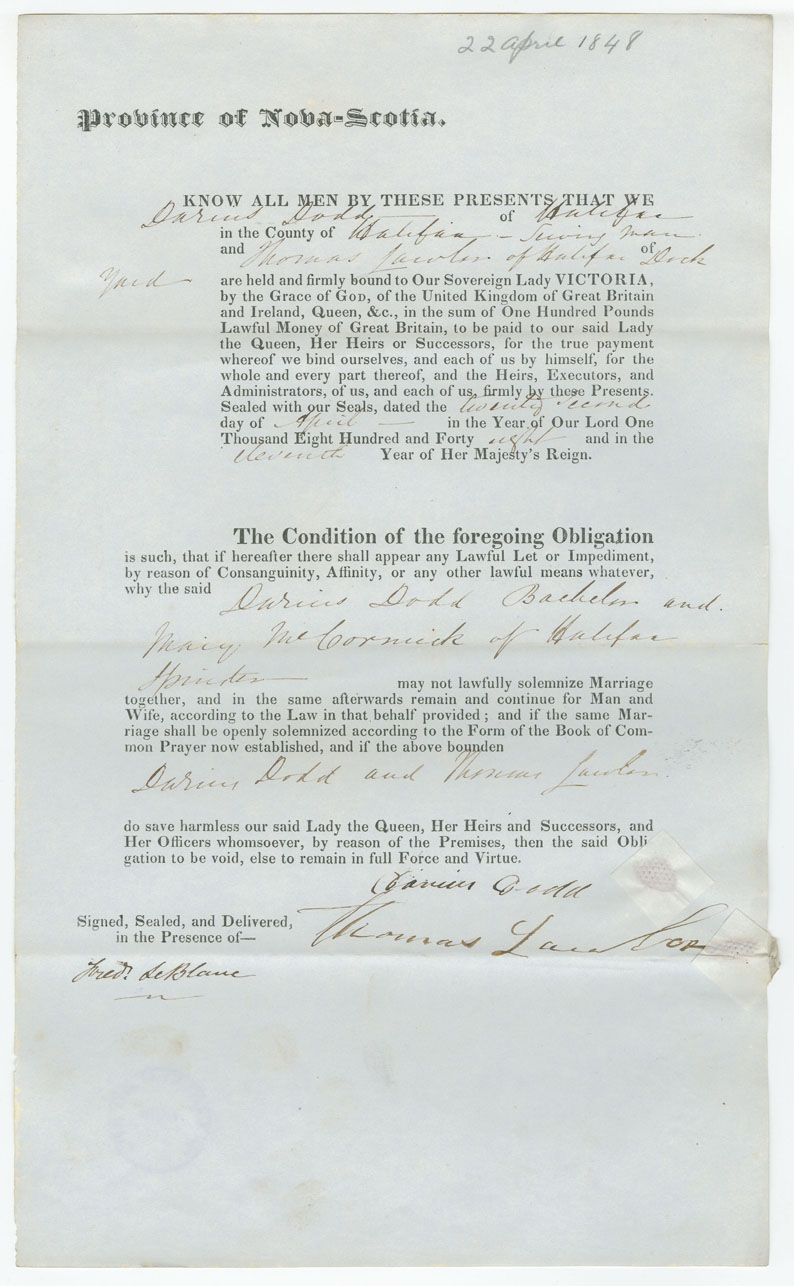 22 april 1848
Province of Nova-Scotia.
KNOW ALL MEN BY THESE PRESENTS THAT WE
Darius Dodd of Halifax
in the County of Halifax –
and Thomas Lawlor of Halifax Dock of
Yard are held and firmly bound to Our Sovereign Lady VICTORIA,
by the Grace of GOD, of the United Kingdom of Great Britain
and Ireland, Queen, &c., in the sum of One Hundred Pounds
Lawful Money of Great Britain, to be paid to our said Lady
the Queen, Her Heirs or Successors, for the true payment
whereof we bind ourselves, and each of us by himself, for the
whole and every part thereof, and the Heirs, Executors, and
Administrators, of us, and each of us, firmly by these Presents.
Sealed with our Seals, dated the twenty second
day of April — in the Year of Our Lord One
Thousand Eight Hundred and Forty eight and in the
eleventh Year of Her Majesty's Reign.
The Condition of the foregoing Obligation
is such, that if hereafter there shall appear any Lawful Let or Impediment,
by reason of Consanguinity, Affinity, or any other lawful means whatever,
why the said Darius Dodd Bachelor and
Mary McCormick of Halifax
Spinster may not lawfully solemnize Marriage
together, and in the same afterwards remain and continue for Man and
Wife, according to the Law in that behalf provided; and if the same Mar-
riage shall be openly solemnized according to the Form of the Book of Com-
mon Prayer now established, and if the above bounden
Darius Dodd and Thomas Lawlor.
do save harmless our said Lady the Queen, Her Heirs and Successors, and
Her Officers whomsoever, by reason of the Premises, then the said Obli
gation to be void, else to remain in full Force and Virtue.
Darius Dodd
Signed, Sealed, and Delivered,
in the Presence of—
Thomas Lawlor
Fredk. LeBlanc